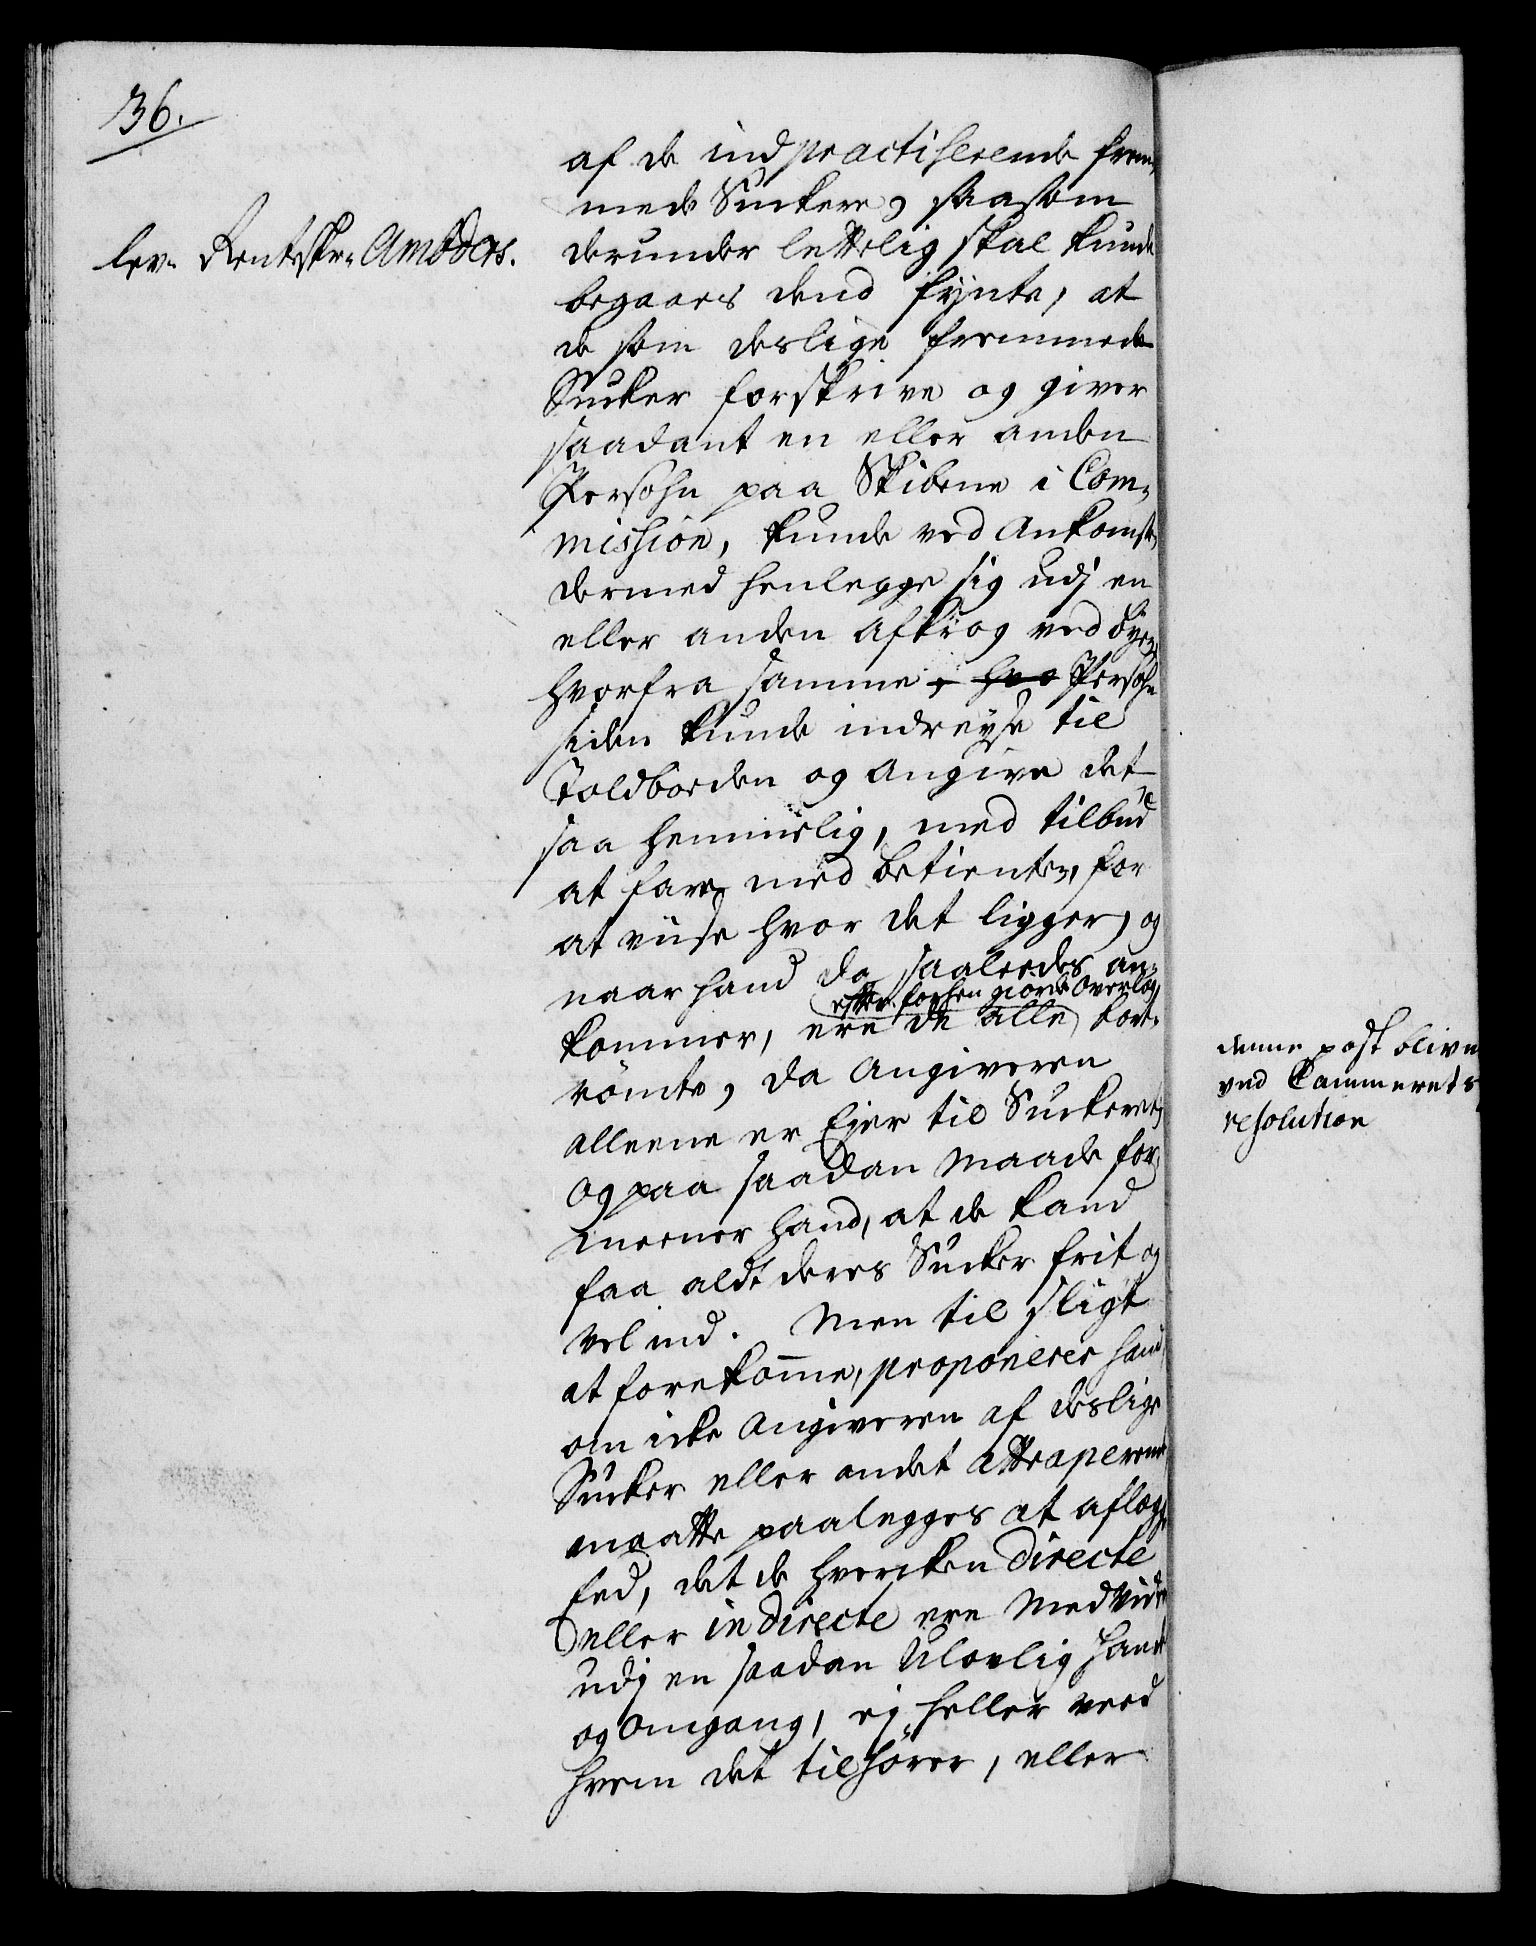 36.
lev. Rentskr. Ambders.
af de ind practiserende frem,
mede Sucker, saasom
derunder lettelig skal kunde
begaaes dend fynte, at
de som deslige fremmede
Sucker forskrive og giver
saadant en eller anden
Persohn paa Skibene i Com,
mission, kunde ved Ankomst,
dermed henlegge sig udj en
eller anden afkrog ved Byen,
hvorfra samme, hvo Persohn
siden kunde indreyse til
Toldboeden og angive det
saa hemmelig, med tilbud
at fare med betienter, for
at viise hvor det ligger, og
naar hand da saaleedes an-
efter forhen giorde Overlæg,
kommer, ere de alle bort-
römte, da Angiveren
alleene er Ejer til Suckeret,
og paa saadan Maade for,
meener hand, at de kand
faa aldt deres Sucker frit og
vel ind. Men til sligt
at forekomme, proponerer hand,
om icke Angiveren af deslige
Sucker eller andet attraperende
maatte paalegges at aflegge
Eed, det de hvercken directe
eller indirecte ere Medvider
udj en saadan Ulovlig Handel
og omgang, ej heller veed
hvem det tilhører, eller
denne post bliver
ved Cammerets
resolution